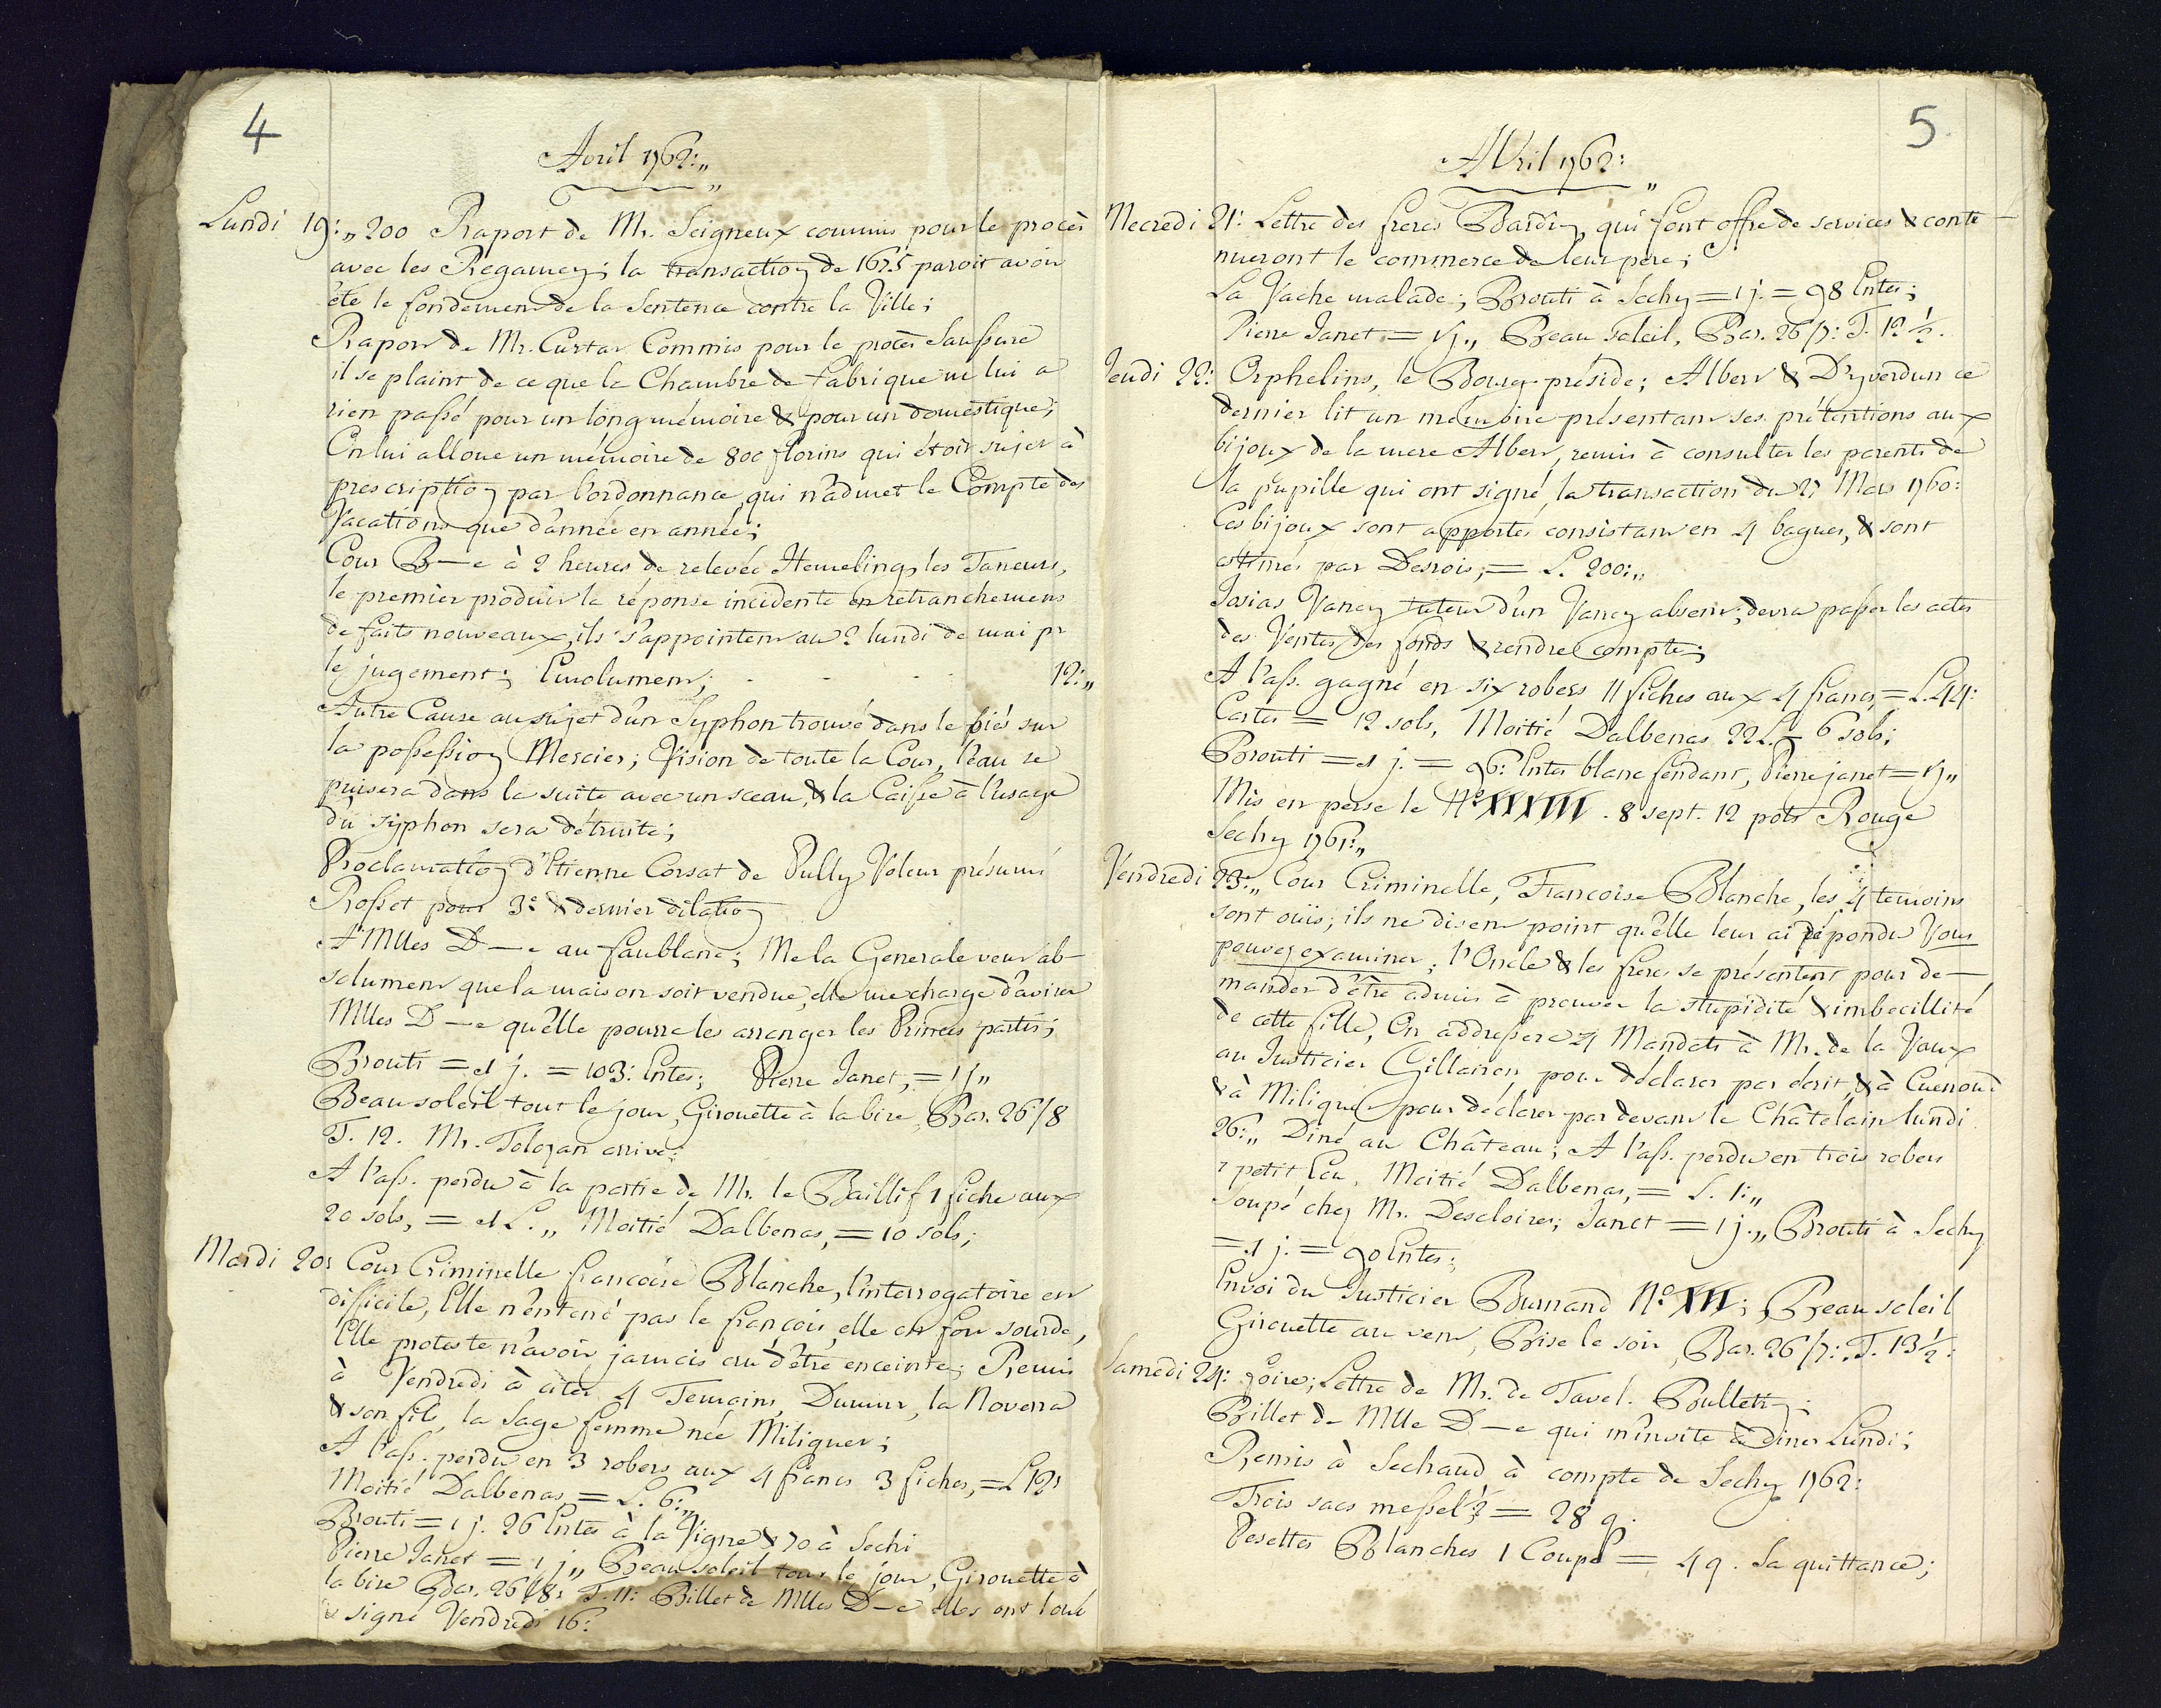 4
Avril 1762:„
Lundi 19:„ 200 Raport de Mr. Seigneux commis pour le procès
avec les Regamey; la transaction de 1675 paroit avoir
été le fondement de la Sentence contre la Ville;
Raport de Mr. Curtat Commis pour le procès Saussure
il se plaint de ce que la Chambre de fabrique ne lui a
rien passé pour un long mémoire & pour un domestique;
On lui alloue un mémoire de 800 florins qui étoit sujet à
prescription par l'ordonnance qui n'admet le Compte des
Vacations que d'année en année;
Cour B—e à 2 heures de relevée Hemeling, les Taneurs,
le premier produit la réponse incidente en retranchemens
de faits nouveaux, ils s'appointent au 2 lundi de mai pr
le jugement; Emolument; . . . . 12:„
Autre Cause au sujet d'un Syphon trouvé dans le piés sur
la possession Mercier; Vision de toute la Cour, l'eau se
puisera dans la suite avec un sceau, & la Caisse à l'usage
du syphon sera détruite;
Proclamation d'Etienne Corsat de Pully Voleur présumé
Rosset pour 3e & dernier dilation
A Mlles D—e au faublanc; Me la Generale veut ab-
solument que la maison soit vendue, elle me charge d'aviser
Mlles D—e qu'elle pourra les arranger les Princes partis;
Brouti = 1 j. = 103: Entes; Pierre Janet, = 1 j„
Beau soleil tout le jour, Girouette à la bise, Bar. 26/8
T. 12. Mr. Tolozan arrivé;
A l'ass. perdu à la partie de Mr. le Baillif 1 fiche aux
20 sols, = 1 L.„ Moitié Dalbenas, = 10 sols;
Mardi 20: Cour Criminelle francoise Blanche, l'interrogatoire est
difficile, Elle n'entend pas le françois, elle est fort sourde,
Elle proteste n'avoir jamais cru d'être enceinte; Remis
à Vendredi à citer 4 Temoins, Dumur, la Noverra
& son fils, la Sage femme née Miliquet;
A l'ass. perdu en 3 robers aux 4 francs 3 fiches, = L 12:
Moitié Dalbenas, = L. 6:„
Brouti = 1 j. 26 Entes à la Vigne & 70 à Sechi
Pierre Janet = 1 j„ Beau soleil tout le jour, Girouette à
la bise Bar. 26/8: T. 11: Billet de Mlles D—e elles ont loué
& signé Vendredi 16:
5
AVril 1762:
Mecredi 21: Lettre des freres Bardin, qui font offre de services & conti-
nueront le commerce de leur pere;
La Vache malade; Brouti à Sechy = 1 j. = 98 Entes;
Pierre Janet = 1 j„ Beau Soleil, Bar. 26/7: T. 12 ½.
Jeudi 22: Orphelins, le Bourg. préside; Albert & D'yverdun ce
dernier lit un mémoire présentant ses prétentions aux
bijoux de la mere Albert, remis à consulter les parents de
la pupille qui ont signé la transaction du 27 Mars 1760:
Ces bijoux sont apportés consistant en 4 bagues, & sont
estimés par Desrois; = L. 200:„
Josias Vaney tuteur d'un Vaney absent; devra passer les actes
des Ventes des fonds & rendre compte;
A l'ass. gagné en six robers 11 fiches aux 4 francs, = L. 44:
Cartes = 12 sols, Moitié Dalbenas 22 L. = 6 sols;
Brouti = 1 j. = 96: Entes blanc fendant, Pierre janet = 1 j„
Mis en perse le No XXXIII. 8 sept. 12 pots Rouge
Sechy 1761:„
Vendredi 23:„ Cour Criminelle, Francoise Blanche, les 4 temoins
sont ouïs; ils ne disent point qu'elle leur ai répondu Vous
pouvez examiner; l'Oncle & les freres se présentent pour de-
mander d'être admis à prouver la stupidité & imbecillité
de cette fille, On addressera 4 Mandats à Mr. de la Vaux
au Justicier Gillairon pour déclarer par écrit, & à Cuénoud
& à Miliquet pour déclarer par devant le Châtelain lundi
26:„ Diné au Château; A l'ass. perdu en trois robers
1 petit Ecu, Moitié Dalbenas, = L. 1:„
Soupé chez Mr. Descloires; Janet = 1 j.„ Brouti à Sechy
= 1 j. = 90 Entes;
Envoi du Justicier Burnand No XVI; Beau soleil
Girouette au vent, Bise le soir, Bar. 26/7: T. 13 ½:
Samedi 24: foire; Lettre de Mr. de Tavel. Bulletin;
Billet de Mlle D—e qui m'invite à Diner Lundi;
Remis à Sechaud à compte de Sechy 1762:
Trois sacs messel = 28 q.
Pesettes Blanches 1 Coupe = 4 q. Sa quittance;